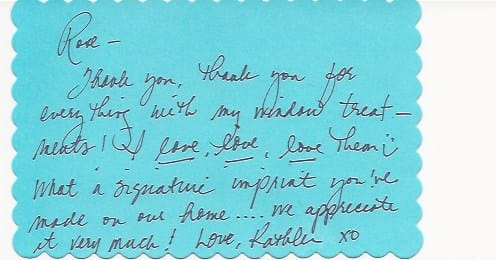 Rose -
Thank you, thank you for
everything with my window treat-
ments! I love, love, love them!
What a signature imprint you've
made on our home.... we appreciate
it very much! Love, Kathleen xo